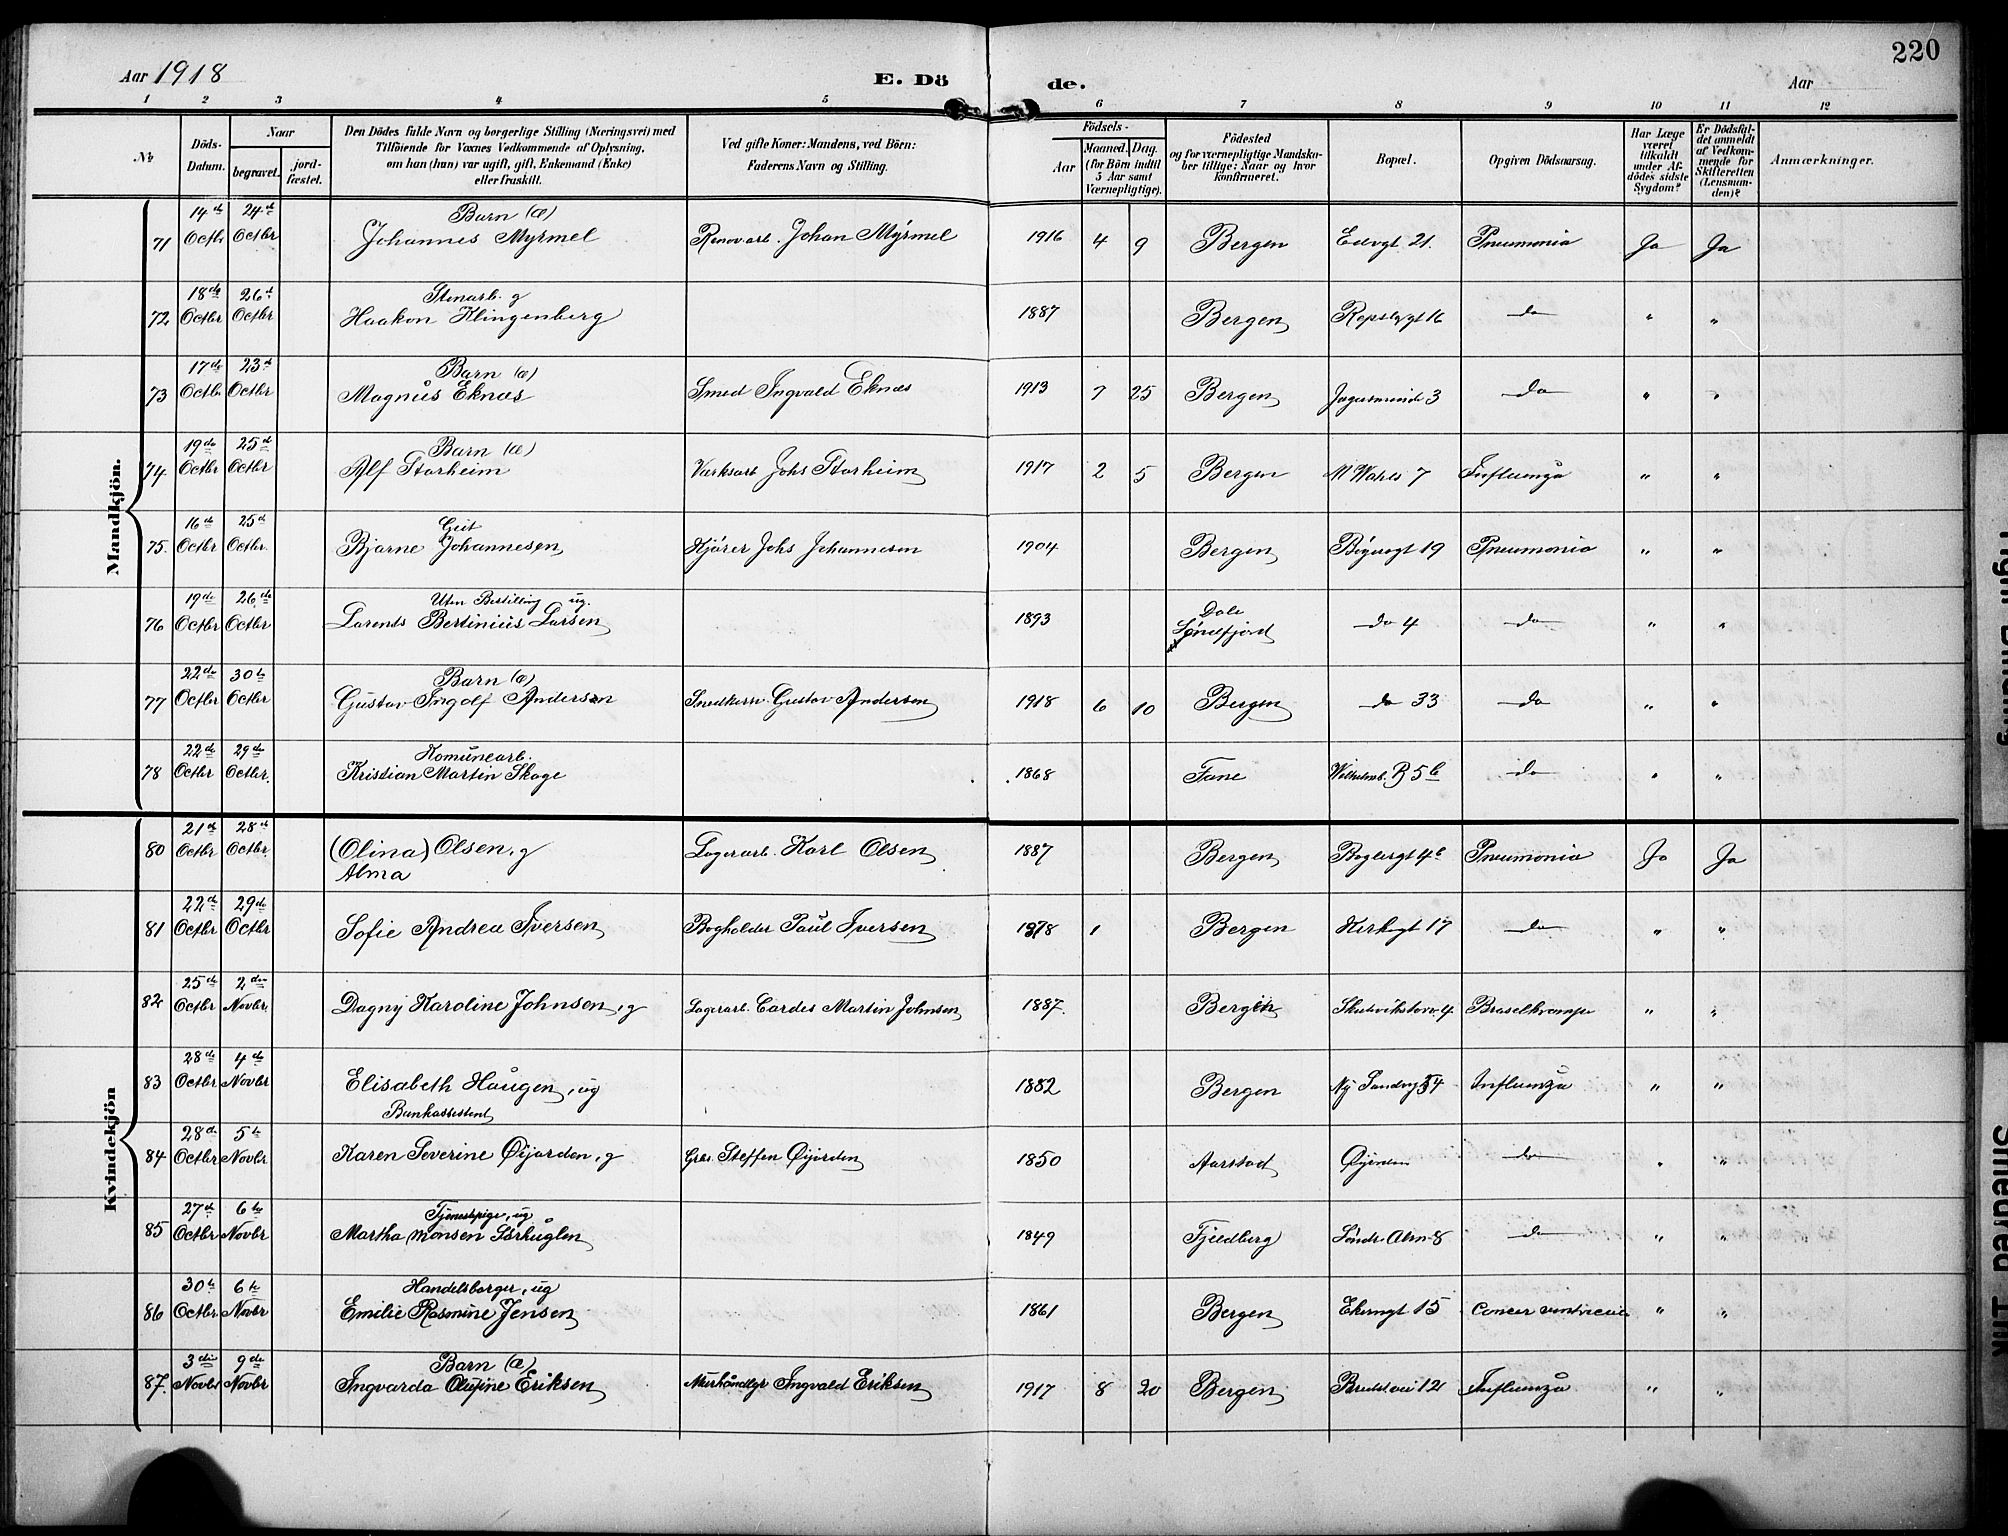 220
Aar 1918
E. Dö de.
Aar
1 2 3 4 5 6 7 8 9 10 11 12
№
Döds-Datum.
Naar
begravet.
jord-fæstet.
Den Dödes fulde Navn og borgerlige Stilling (Næringsvei) med
Tilföiende for Voxnes Vedkommende af Oplysning,
om han (hun) var ugift, gift, Enkemand (Enke)
eller fraskilt.
Ved gifte Koner: Mandens, ved Börn:
Faderens Navn og Stilling.
Födsels-
Aar
Maaned. Dag.
(for Börn indtil
5 Aar samt
Værnepligtige).
Födested
og for værnepligtige Mandska-
ber tillige: Naar og hvor
konfirmeret.
Bopæl.
Opgiven Dödsaarsag.
Har Læge
været
tilkaldt
under Af-
dödes sidste
Sygdom?
Er Dödsfal-
det anmeldt
af Vedkom-
mende for
Skifteretten
(Lensman-
den)?
Anmærkninger.
Mandkjön.
71 14de Octbr 24de Octbr Barn (Æ) Johannes Myrmel Renovarb. Johan Myrmel 1916 4 9 Bergen 21. Pneumonia Ja Ja
72 18de Octbr 26d Octbr Stenarb. g Haakon Klingenberg 1887 Bergen Repslgt 16 do " "
73 17de Octbr 23d Octbr Barn (Æ) Magnus Eknæs Smed Ingvald Eknæs 1913 7 25 Bergen 3 do " "
74 19de Octbr 25d Octbr Barn (Æ) Alf Storheim Værksarb Johs Storheim 1917 2 5 Bergen 7 Influenza " "
75. 16d Octbr 25d Octbr. Gut Bjarne Johannesen Kjører Johs Johannesen 1904 Bergen Bøgesgt 19 Pneumonia " "
76 19de Octbr 26de Octbr Uten Bestilling ug. Larends Bertinius Larsen 1893 Dale Søndfjord do 4 do " "
77 22de Octbr 30te Octbr Barn (Æ) Gustav Ingolf Andersen Snedkersv. Gustav Andersen 1918 6 10 Bergen do 33 do " "
78 22de Octbr 29de Octbr. Komünearb. Kristian Martin Skage 1868 Fane 5b do " "
Kvindekjön
80 21d Octbr 28d Octbr. (Olina) Olsen, g Alma Lagerarb. Karl Olsen 1887 Bergen Pneumonia Ja Ja
81 22d Octbr 29de Octbr Sofie Andrea Iversen Bogholder Paul Iversen 1918 1 Bergen Kirkegt 17 do " "
82 25de Octbr 2den Novbr. Dagny Karoline Johnsen, g Lagerarb. Cardes Martin Johnsen 1887. Bergen Skutevikstorv 4 Braselkrampe " "
83 28de Octbr 4de Novbr Elisabeth Haugen, ug Bankassistent 1882 Bergen Influenza " "
84 28d Octbr 5te Novbr Karen Severine Øyjorden, g Grb. Steffen Øyjorden 1850 Aarstad Øyjorden do " "
85 27d Octbr 6te Novbr Tjenestpige, ug Martha Monsen Sørhuglen 1849 Fjeldberg 8 do " "
86 30te Octbr 6te Novbr Handelsborger, ug Emilie Rasmine Jensen 1861 Bergen 15 Cancer ventriculi " "
87. 3die Novbr 9de Novbr Barn (Æ) Ingvarda Olufine Eriksen Murhåndlgr Ingvald Eriksen 1917 8 20 Bergen 12 Influenza " "